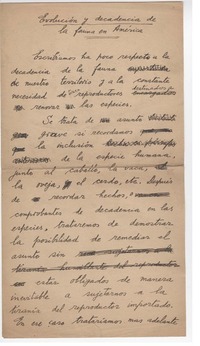 Evolución y decadencia de
la fauna en América
Escribimos ha poco respecto a la
decadencia de la fauna
de nuestro territorio y a la constante
necesidad de reproductores destinados a
renovar las especies.
Se trata de un asunto
grave si recordamos
la inclusión
de la especie humana,
junto al caballo, la vaca,
la oveja, el cerdo, etc. Después
de recordar hechos,
comprobantes de decadencia en las
especies, trataremos de demostrar
la posibilidad de remediar el
asunto sin
estar obligados de manera
inevitable a sujetarnos a la
tiranía del reproductor importado.
En ese caso trataríamos mas adelante